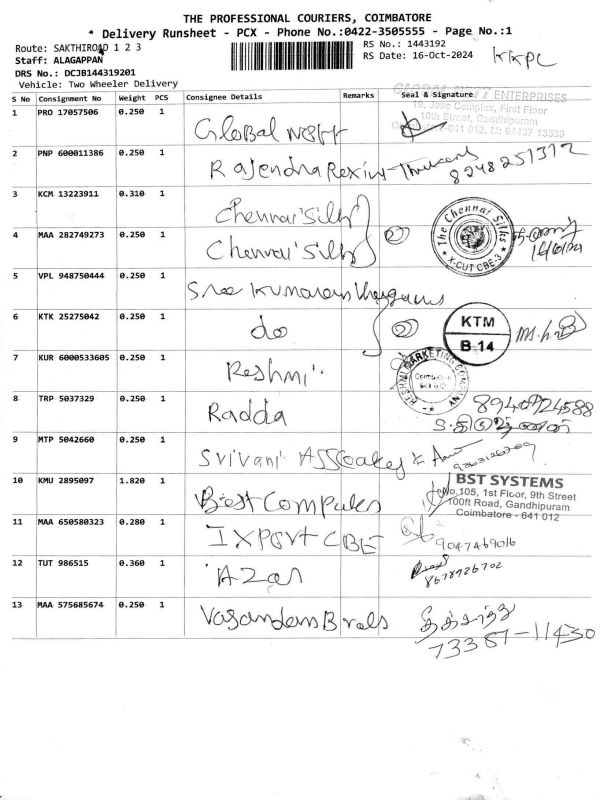 THE PROFESSIONAL COURIERS, COIMBATORE
* Delivery Runsheet - PCX - Phone No.:0422-3505555 - Page No.:1
Route: SAKTHIROAD 1 2 3
RS No.: 1443192
Staff: ALAGAPPAN
RS Date: 16-Oct-2024
KKPC
DRS No.: DCJB144319201
Vehicle: Two Wheeler Delivery
S No Consignment No Weight PCS Consignee Details Remarks Seal & Signature
ENTERPRISES
19, Jose Complex, First Floor
10th Street, Gandhipuram
Coimbatore-641 012, M: 94437 13539
1 PRO 17057506 0.250 1 Global
2 PNP 600011386 0.250 1 Rajendra
8248251312
3 KCM 13223911 0.310 1 Chennai Silks
The Chennai Silks
* X-CUT CBE-3 *
4 MAA 282749273 0.250 1 Chennai Silks
5 VPL 948750444 0.250 1 Sree Kumaran
6 KTK 25275042 0.250 1 do
KTM
B 14
7 KUR 6000533605 0.250 1 Reshmi
RESHMI MARKETING COMPANY
Coimbatore
641 012
8 TRP 5037329 0.250 1 Radda
8940924588
9 MTP 5042660 0.250 1 Srivani
10 KMU 2895097 1.820 1 Best
BST SYSTEMS
No.105, 1st Floor, 9th Street
100ft Road, Gandhipuram
Coimbatore - 641 012
11 MAA 650580323 0.280 1 IXPORT CBE
9047469016
12 TUT 986515 0.360 1 Azar
8678926702
13 MAA 575685674 0.250 1
73387-11430